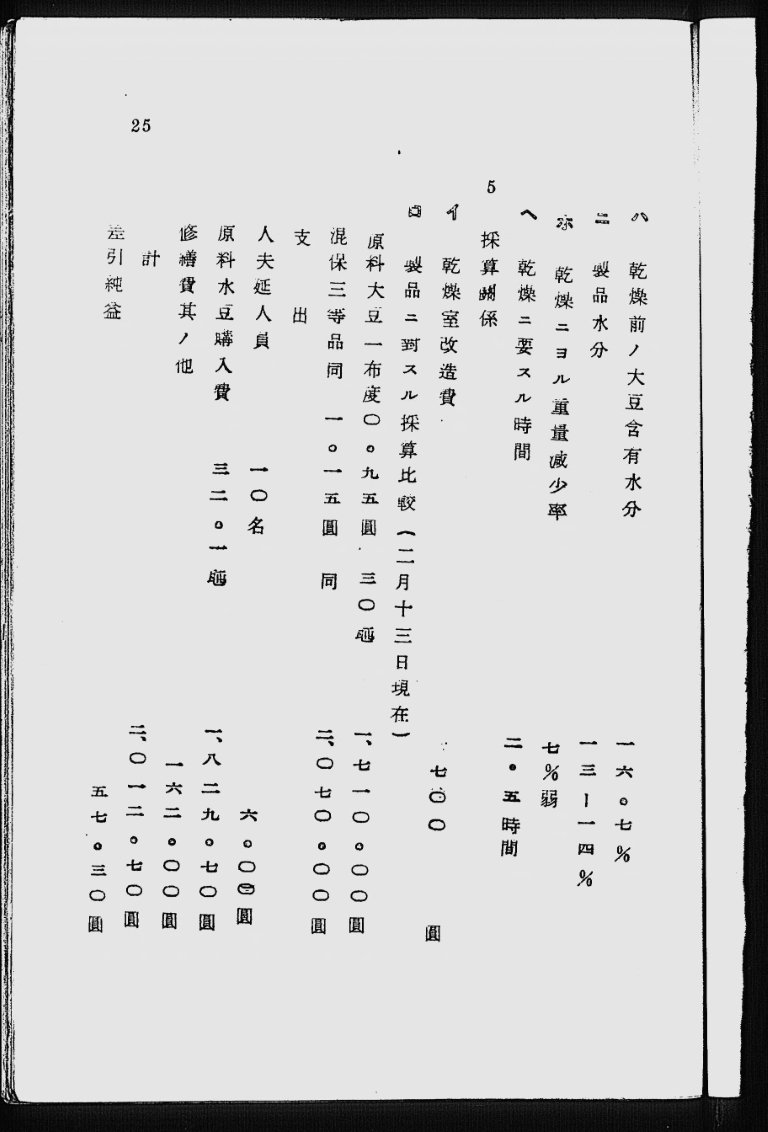 ハ 乾燥前ノ大豆含有水分 一六。七%
ニ 製品水分 一三ー一四%
ホ 乾燥ニヨル重量減少率 七%弱
ヘ 乾燥ニ要スル時間 二。五時間
5 採算關係
イ 乾燥室改造費 七〇〇圓
ロ 製品ニ對スル採算比較(二月十三日現在)
原料大豆一布度〇。九五圓 三〇瓲 一、七一〇。〇〇圓
混保三等品同 一。一五圓 同 二、〇七〇。〇〇圓
支出
人夫延人員 一〇名 六。〇〇圓
原料水豆購入費 三二。一瓲 一、八二九。七〇圓
修繕費其ノ他 一六二。〇〇圓
計 二、〇一二。七〇圓
差引純益 五七。三〇圓
25